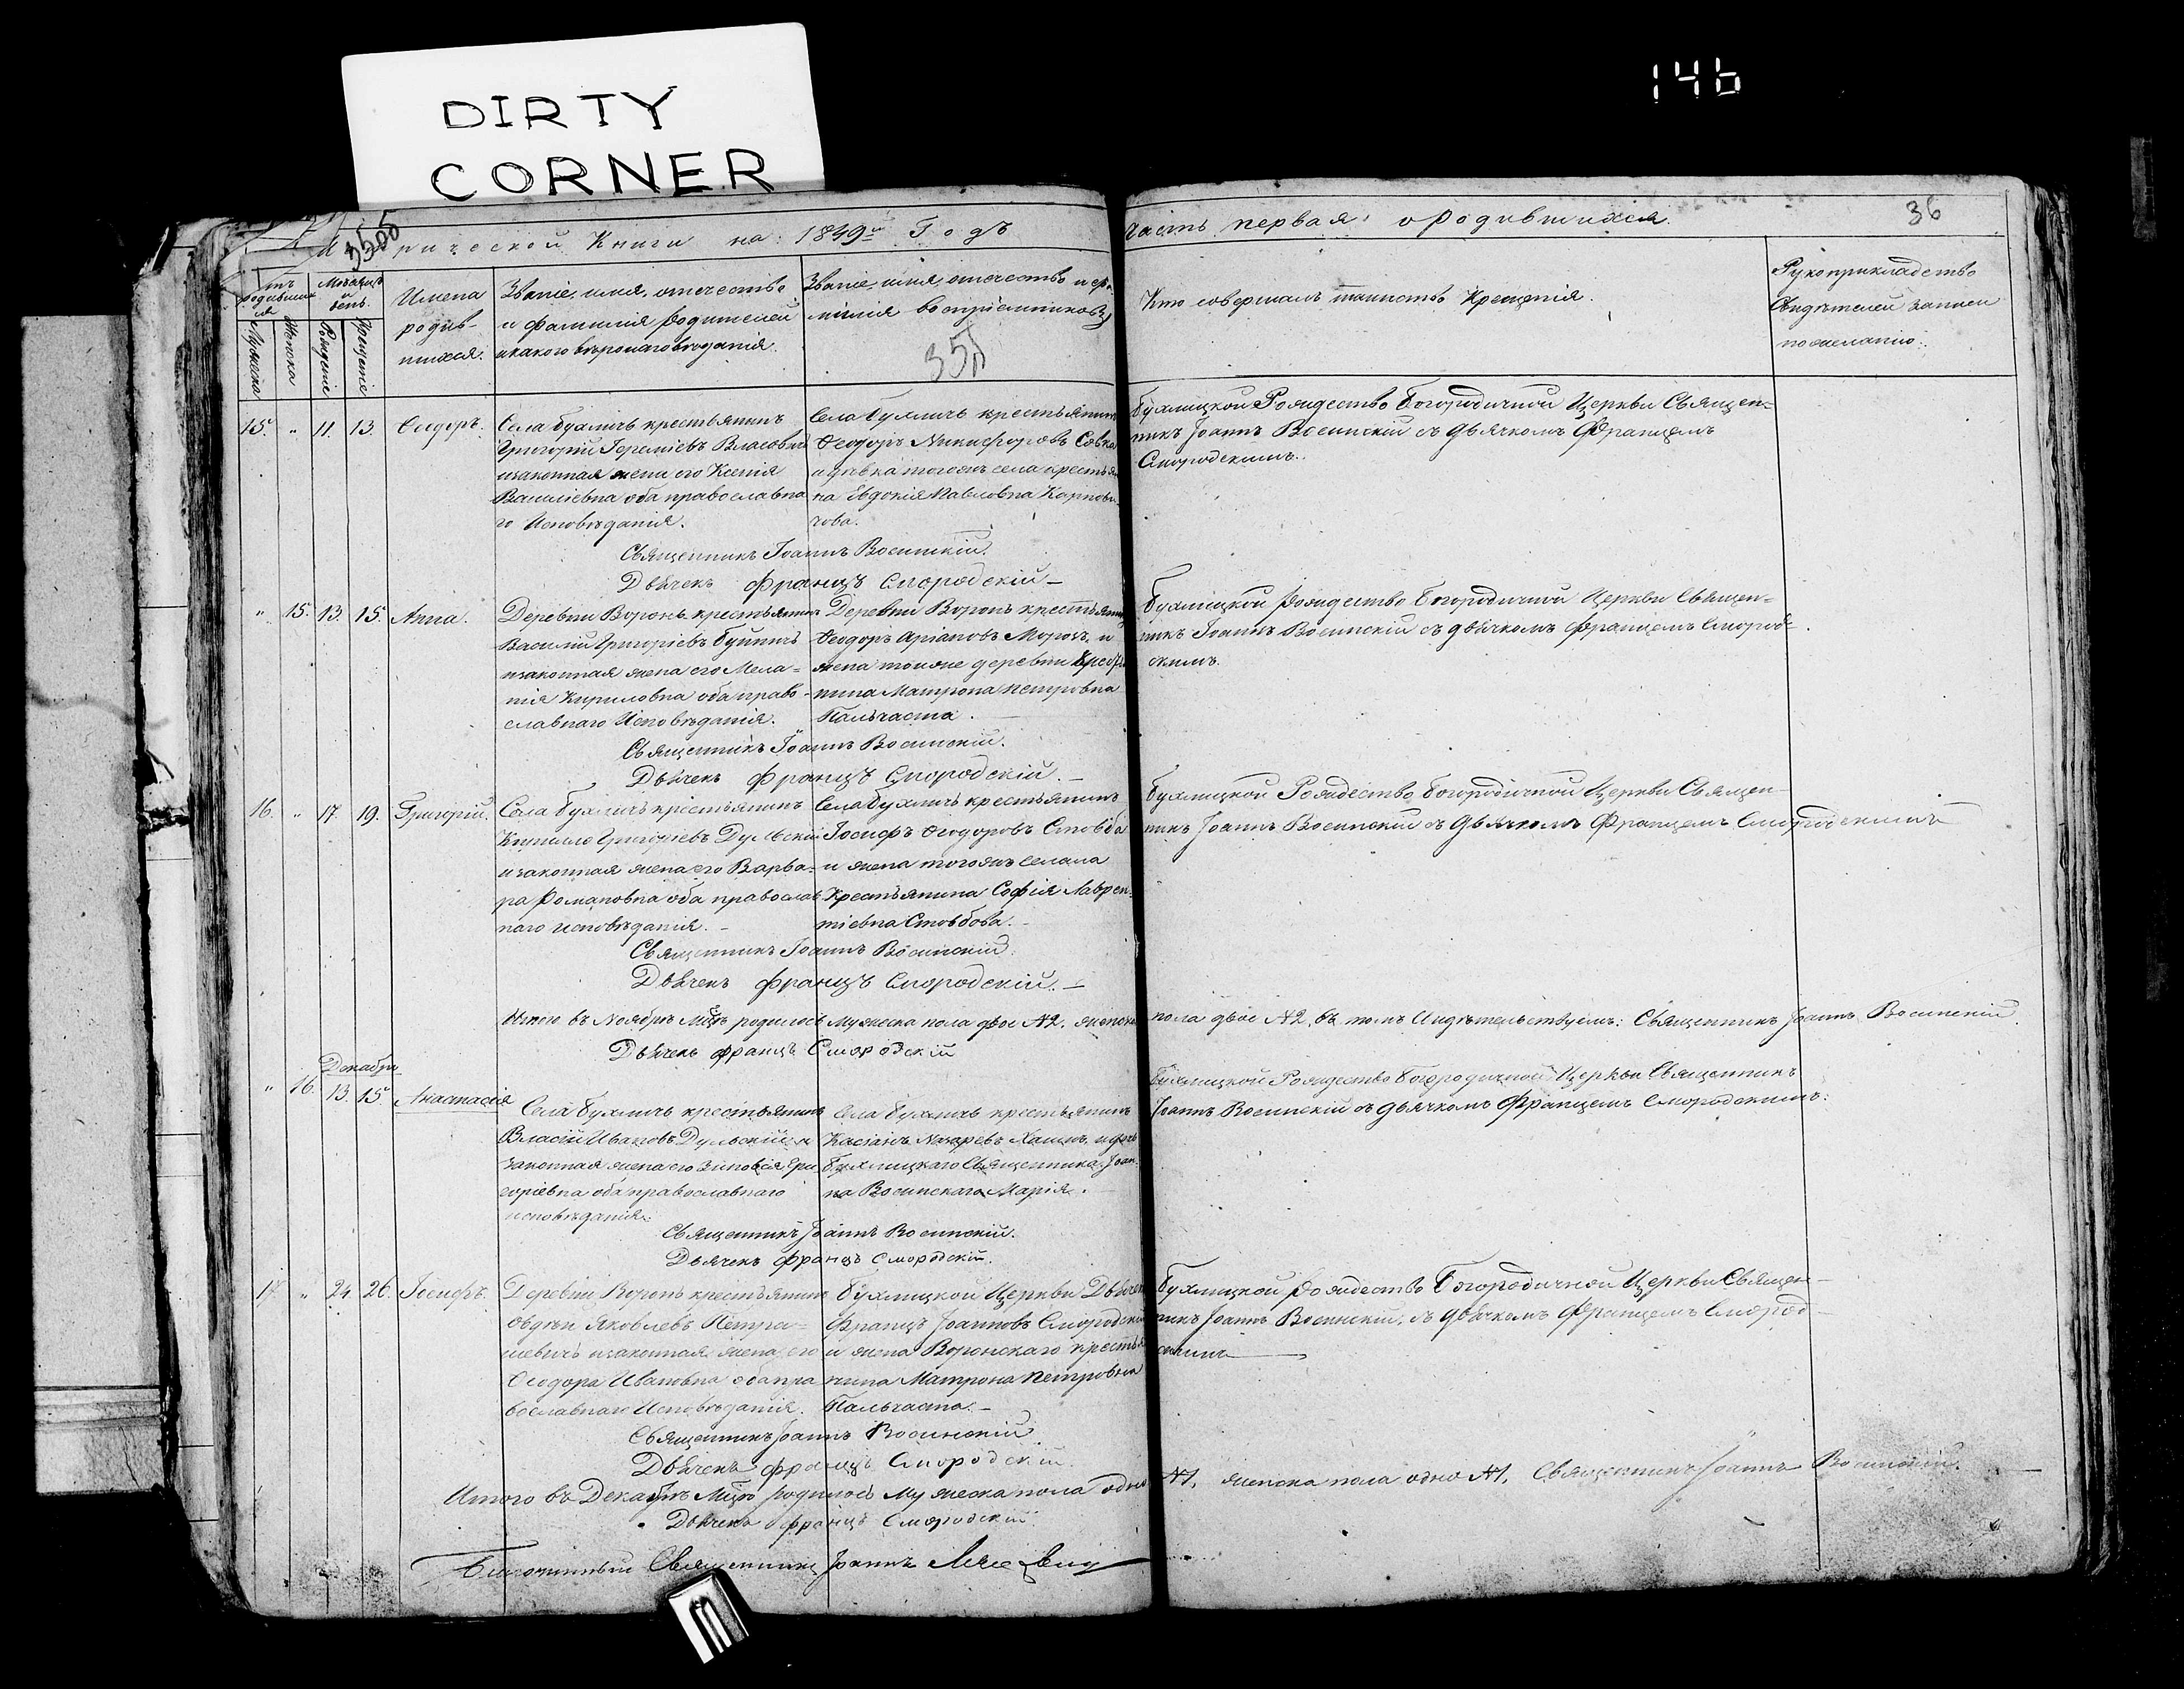 DIRTY
CORNER
146
Метрической Книги на 1849й Годъ
Часть первая о родившихся
36
Мѣсяцъ и день.
Мужеска
Женска
Рожденія
Крещенія
Имена родив-
шихся.
Званіе, имя, отечество
и фамилія родителей
и какого вѣроисповѣданія.
Званіе, имя, отечество и фа-
милія воспріемниковъ
Кто совершалъ таинство Крещенія.
Рукоприкладство
Свидѣтелей записи
по желанію.
15. " 11. 13. Ѳеодоръ.
Села Бухличъ крестьянинъ
Григорій Іереміевъ Власовичъ
и законная жена его Ксенія
Василіевна оба православна
го Исповѣданія.
Села Бухличъ крестьянинъ
Ѳеодоръ Никифоровъ Савка
и дѣвка тогожъ села крестьян
ка Евдокія Павловна Карпови
чова.
Бухлицкой Рождество Богородичной Церкви Священ-
никъ Іоаннъ Восинскій съ дьячкомъ Францемъ
Смородскимъ.
Священникъ Іоаннъ Восинскій.
Дьячекъ Францъ Смородскій
" 15. 13. 15. Анна.
Деревни Воронь крестьянинъ
Василій Григоріевъ Буйничъ
и законная жена его Мела-
нія Кириловна оба право-
славнаго Исповѣданія.
Деревни Воронь крестьянинъ
Ѳеодоръ Аріановъ Морозъ, и
жена тоиже деревни крестья
нина Матрона Петровна
Пальчаста.
Бухлицкой Рождество Богородичной Церкви Священ-
никъ Іоаннъ Восинскій съ дьячкомъ Францемъ Смород-
скимъ.
Священникъ Іоаннъ Восинскій.
Дьячекъ Францъ Смородскій.
16. " 17. 19. Григорій.
Села Бухличъ крестьянинъ
Кирилло Григоріевъ Дульскій
и законная жена его Варва-
ра Романовна оба православ
наго исповѣданія.
Села Бухличъ крестьянинъ
Іосифъ Ѳеодоровъ Стовба
и жена тогожъ села
Крестьянина Софія Лаврен-
тіевна Стовбова.
Бухлицкой Рождество Богородичной Церкви Священ-
никъ Іоаннъ Восинскій съ дьячкомъ Францемъ Смородскимъ
Священникъ Іоаннъ Восинскій.
Дьячекъ Францъ Смородскій.
Итого въ Ноябрѣ Мцѣ родилось Мужеска пола двое №2. женска пола двое №2, въ томъ свидѣтельствуемъ: Священникъ Іоаннъ Восинскій.
Дьячекъ Францъ Смородскій
Декабря
" 16. 13. 15. Анастасія
Села Бухличъ крестьянинъ
Власій Ивановъ Дульскій и
законная жена его Зиновія Гри
горіевна оба православнаго
исповѣданія.
Села Бухличъ крестьянинъ
Касіанъ Назаревъ и дочь
Бухлицкаго Священника Іоан
на Восинскаго Марія.
Бухлицкой Рождество Богородичной Церкви Священникъ
Іоаннъ Восинскій съ дьячкомъ Францемъ Смородскимъ.
Священникъ Іоаннъ Восинскій.
Дьячекъ Францъ Смородскій.
17. " 24. 26. Іосифъ.
Деревни Воронь крестьянинъ
Овдѣй Яковлевъ Петра-
шевичъ и законная жена его
Ѳеодора Ивановна оба пра
вославнаго Исповѣданія.
Бухлицкой Церкви Дьячекъ
Францъ Іоанновъ Смородскій
и жена Воронскаго крестья
нина Матрона Петровна
Пальчаста.
Бухлицкой Рождество Богородичной Церкви Священ-
никъ Іоаннъ Восинскій, съ дьячкомъ Францемъ Смород-
скимъ
Священникъ Іоаннъ Восинскій
Дьячекъ Францъ Смородскій.
Итого въ Декабрѣ Мцѣ родилось Мужеска пола одно №1, женска пола одно №1, Священникъ Іоаннъ Восинскій.
Дьячекъ Францъ Смородскій.
Благочинный Священникъ Іоаннъ